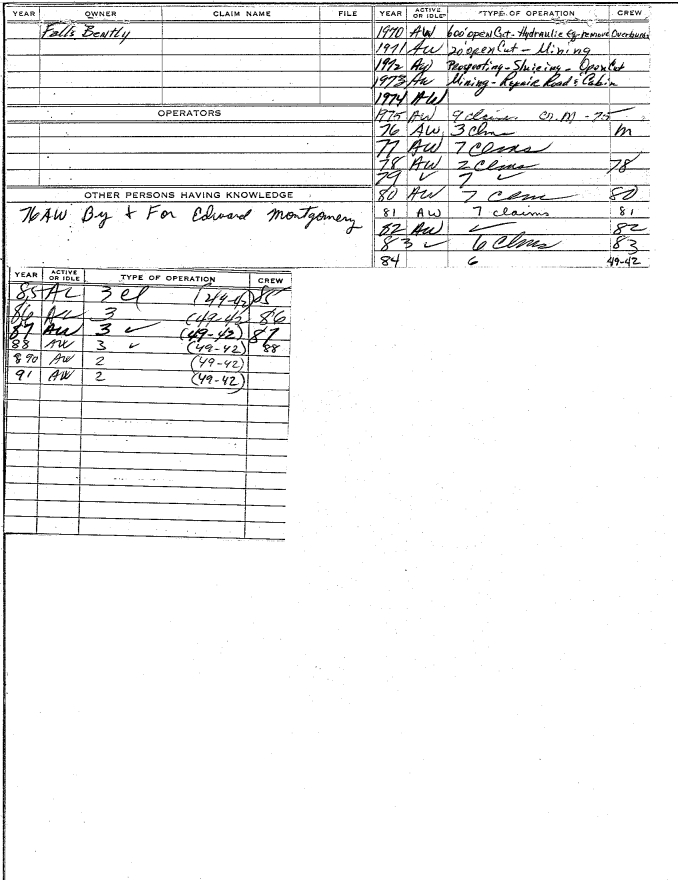 YEAR OWNER CLAIM NAME FILE
Falls Bently
OPERATORS
OTHER PERSONS HAVING KNOWLEDGE
76 AW By & For Edward Montgomery
YEAR ACTIVE OR IDLE TYPE OF OPERATION CREW
1970 AW 600' open Cut - Hydraulic Eq - remove Overburden
1971 AW 20' open Cut - Mining
1972 AW Prospecting - Sluicing - Open Cut
1973 AW Mining - Repair Road & Cabin
1974 AW
1975 AW 9 claims - 75
76 AW 3 clm M
77 AW 7 Clms
78 AW 2 Clms 78
79 ✓ 7 ✓
80 AW 7 clm 80
81 AW 7 claims 81
82 AW ✓ 82
83 ✓ 6 Clms 83
84 6 49-42
YEAR ACTIVE OR IDLE TYPE OF OPERATION CREW
85 3 cl (49-42) 85
86 AW 3 (49-42) 86
87 AW 3 ✓ (49-42) 87
88 AW 3 ✓ (49-42) 88
890 AW 2 (49-42)
91 AW 2 (49-42)